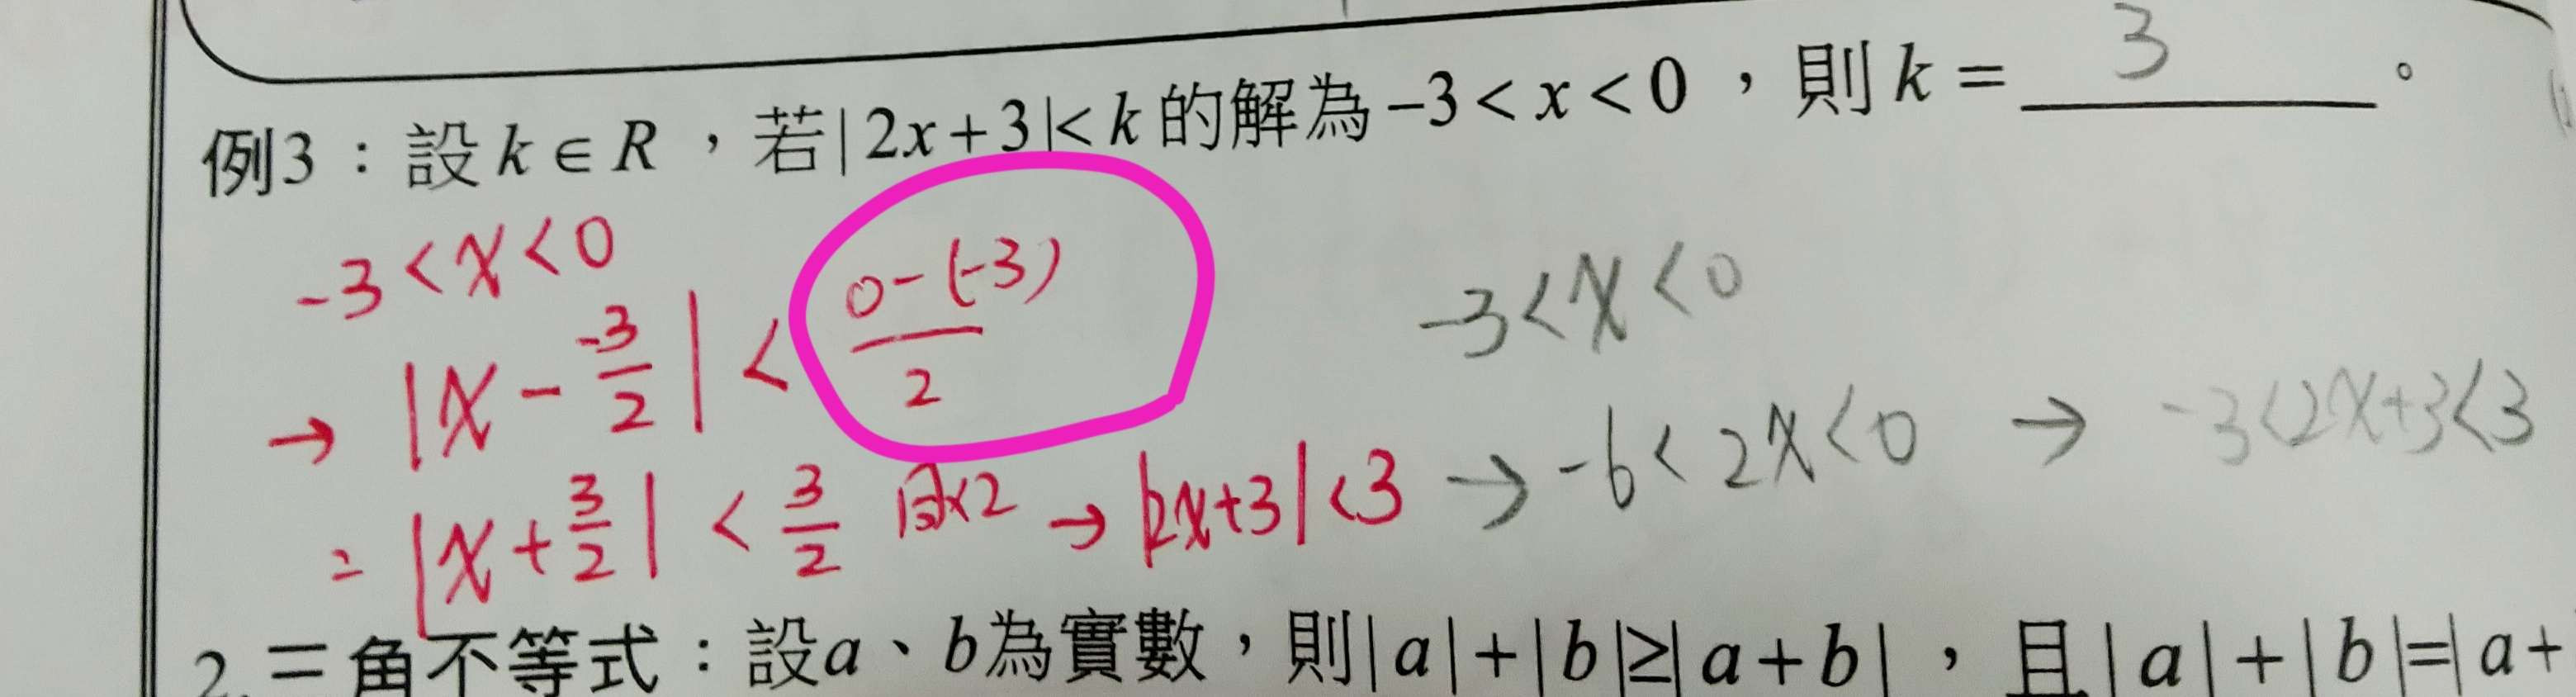 例3：設 k ∈ R ，若 | 2x + 3 |< k 的解為 −3 < x < 0 ，則 k = 3 。
-3 < x < 0
→ |x - \frac{-3}{2}| < \frac{0-(-3)}{2}
= |x + \frac{3}{2}| < \frac{3}{2} 同×2 → |2x+3| < 3
-3 < x < 0
→ -6 < 2x < 0 → -3 < 2x+3 < 3
2. 三角不等式：設a、b為實數，則| a | + | b |≥| a + b | ，且 | a | + | b |=| a +